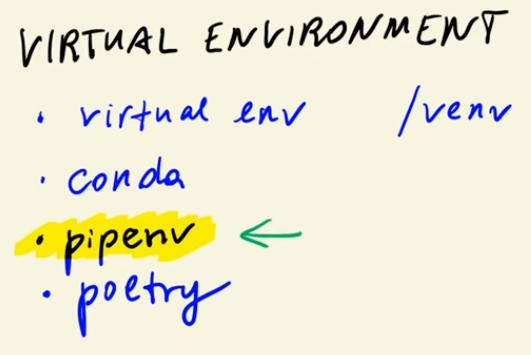 VIRTUAL ENVIRONMENT
• virtual env /venv
• conda
• pipenv
• poetry